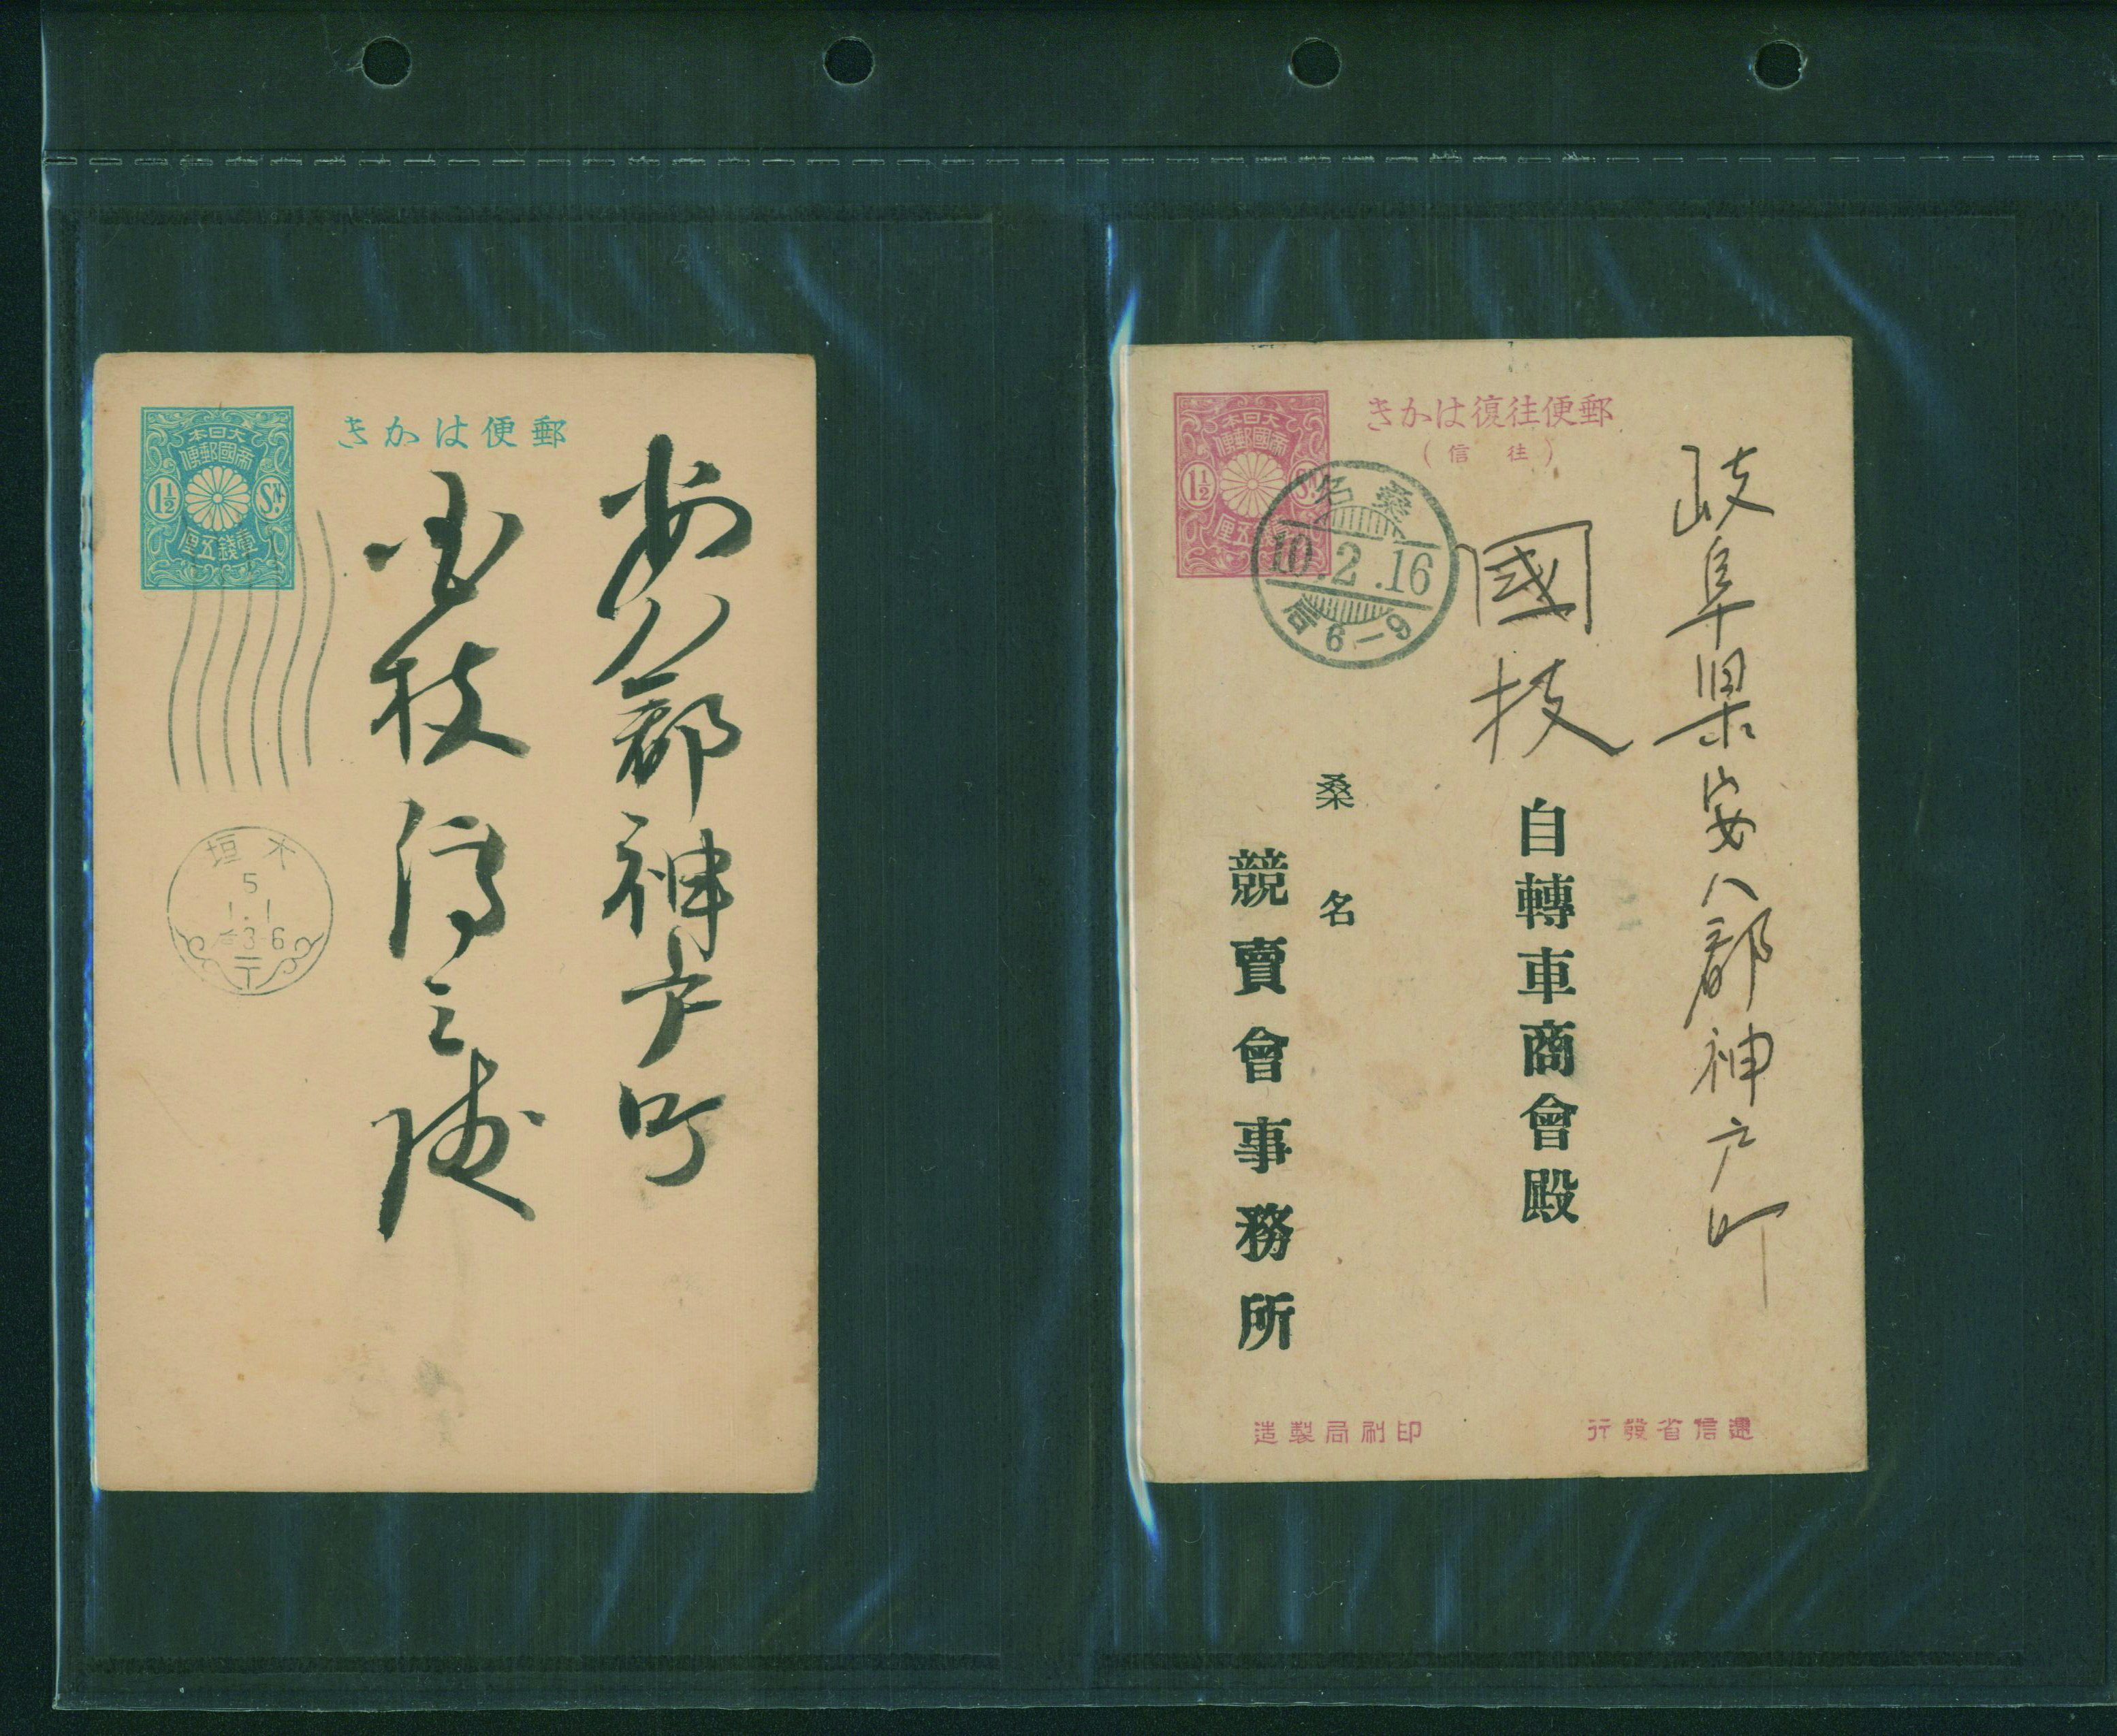 郵便はかき
大日本
帝國郵便
1½ Sn.
壹錢五厘
安八郡神戸町
国枝傳三様
大垣
5
1.1
后3-6
郵便往復はかき
（往信）
大日本
帝國郵便
1½
壹錢五厘
桑名
10.2.16
后6-9
岐阜県安八郡神戸町
國枝
自轉車商會殿
桑名
競賣會事務所
遞信省發行
印刷局製造